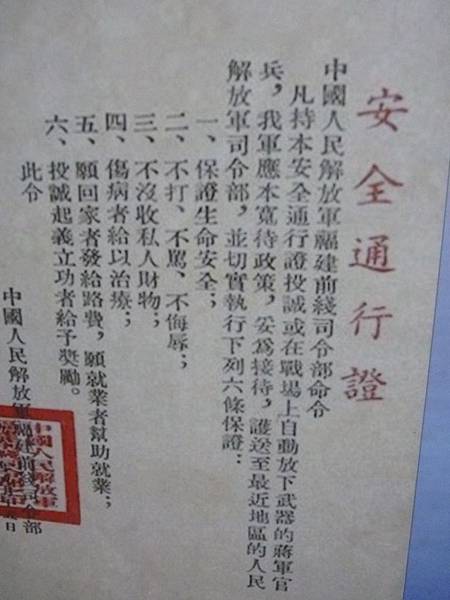 安全通行證
中國人民解放軍福建前綫司令部命令
凡持本安全通行證投誠或在戰場上自動放下武器的蔣軍官
兵，我軍應本寬待政策，妥爲接待，護送至最近地區的人民
解放軍司令部，並切實執行下列六條保證：
一、保證生命安全；
二、不打、不駡、不侮辱；
三、不沒收私人財物；
四、傷病者給以治療；
五、願回家者發給路費，願就業者幫助就業；
六、投誠起義立功者給予奬勵。
此令
中國人民解放軍福建前綫司令部
日
中國人民解放軍